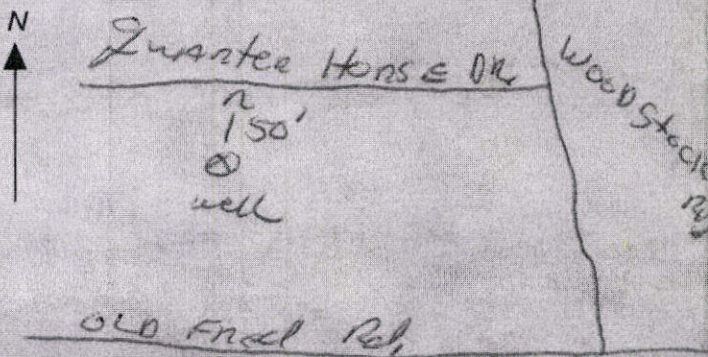 N
Quarter Horse DR.
150'
well
Woodstock
Rd
OLD Rd.